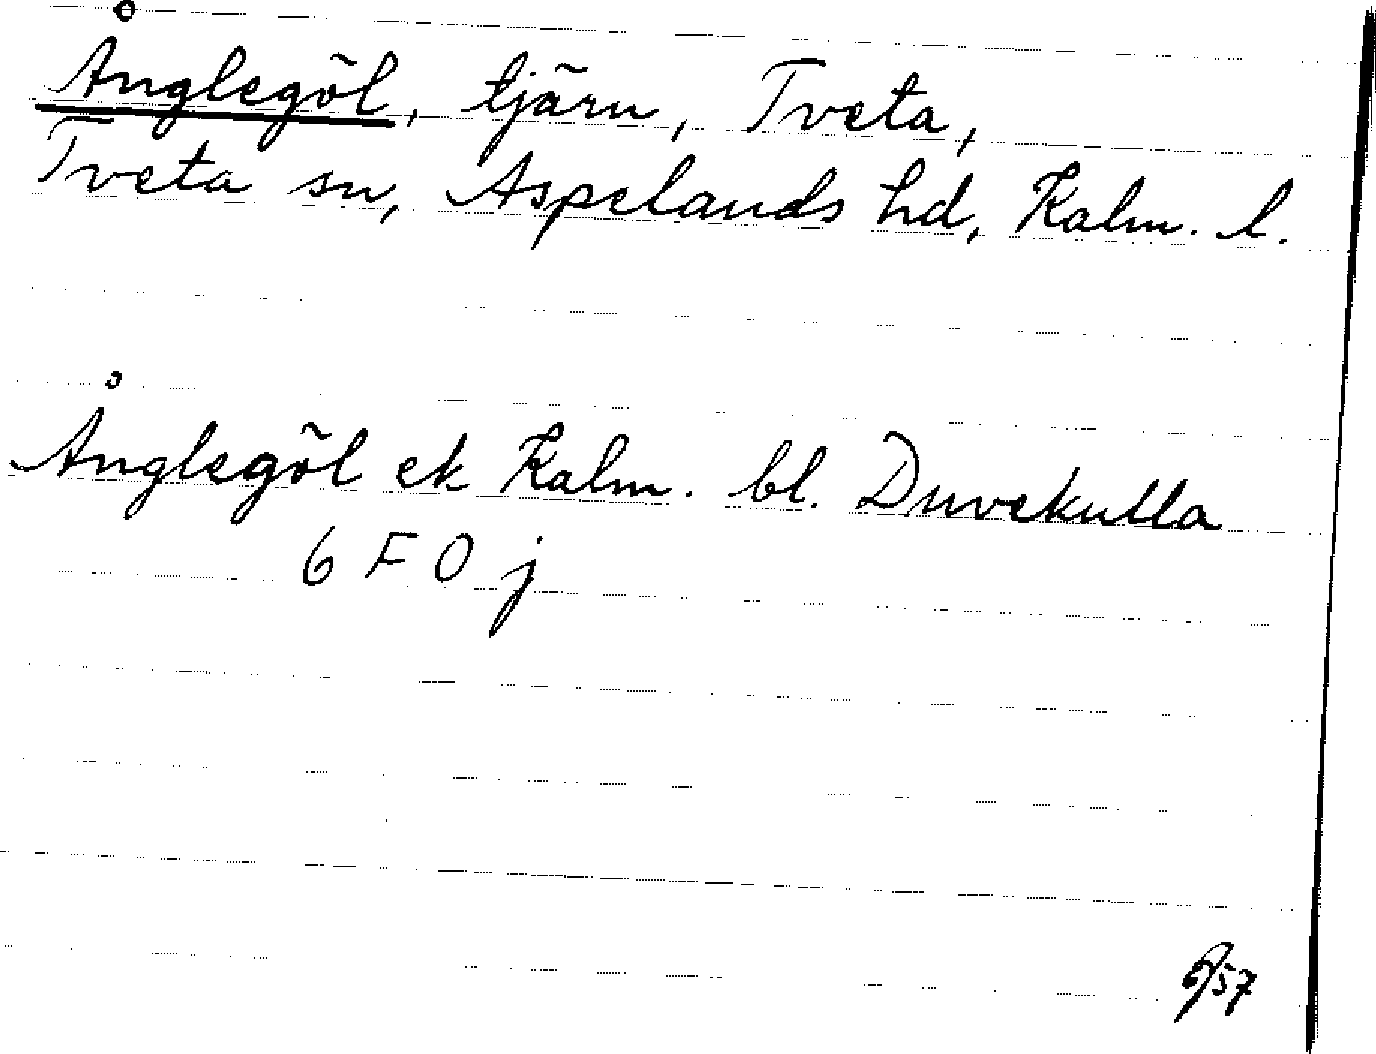 Ånglegöl, tjärn, Tveta,
Tveta sn, Aspelands hd, Kalm. l.
Ånglegöl ek Kalm. bl. Duvekulla
6 F 0 j